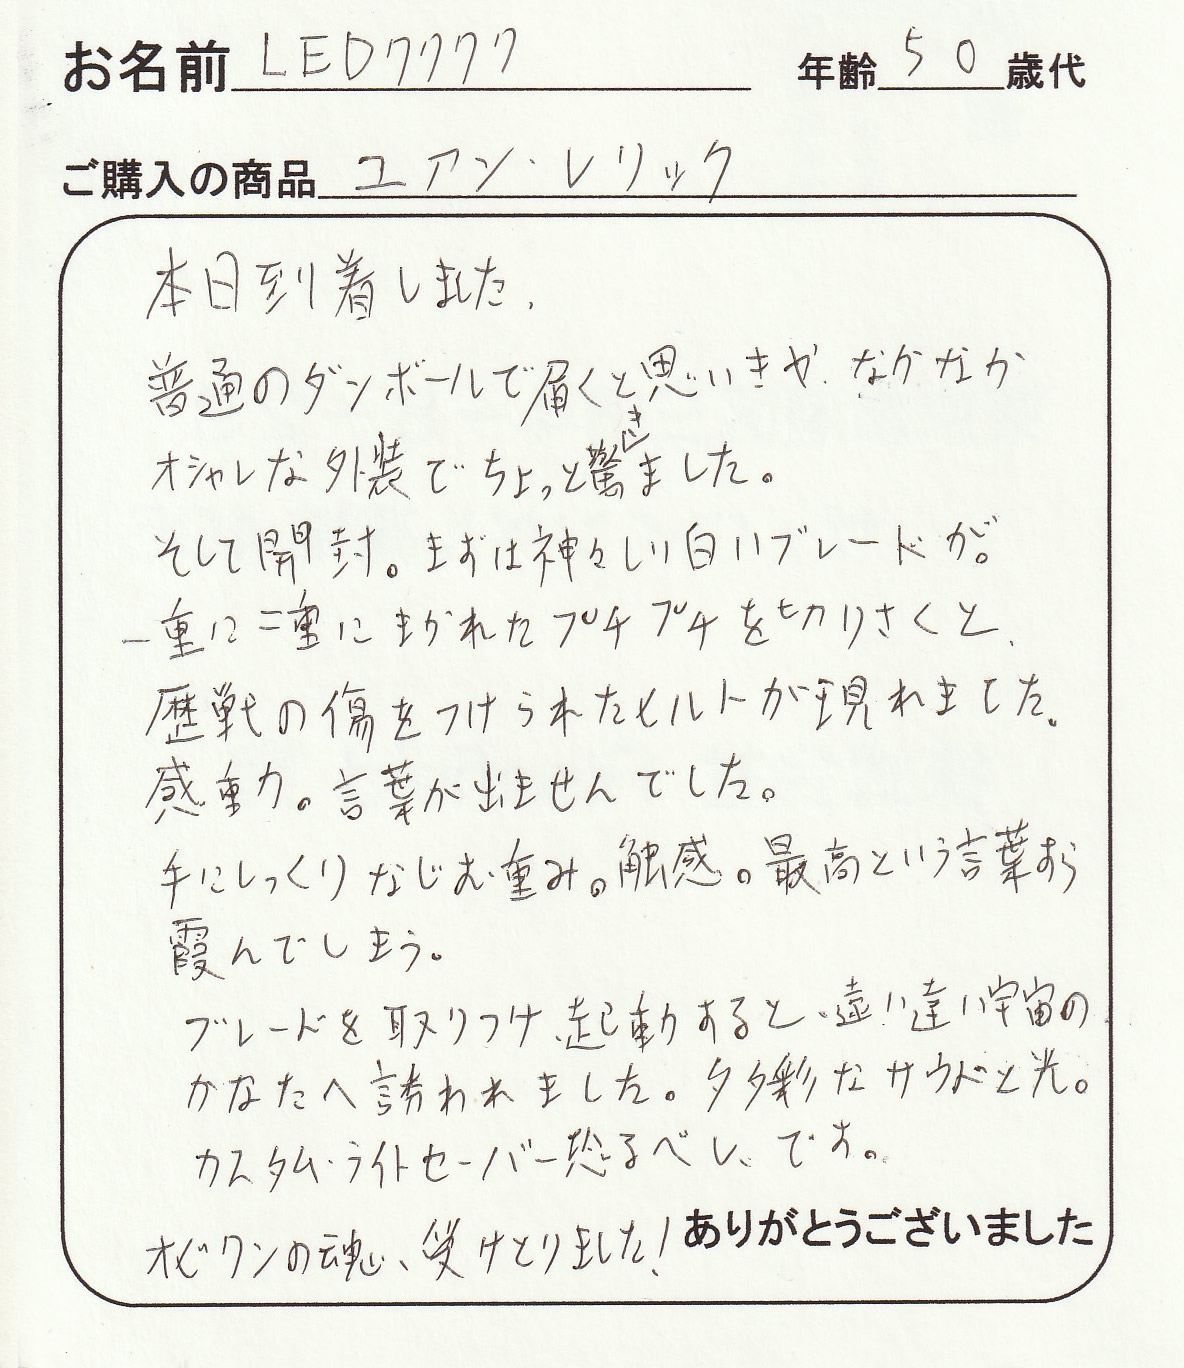 お名前 LED7777 年齢 50 歳代
ご購入の商品 ユアン・レリック
本日到着しました、
普通のダンボールで届くと思いきや、なかなか
オシャレな外装でちょっと驚きました。
そして開封。まずは神々しい白いブレードが。
一重に二重にまかれたプチプチを切りさくと、
歴戦の傷をつけられたヒルトが現れました。
感動。言葉が出ませんでした。
手にしっくりなじむ重み。触感。最高という言葉すら
霞んでしまう。
ブレードを取りつけ、起動すると、遠い遠い宇宙の
かなたへ誘われました。多彩なサウンドと光。
カスタム・ライトセーバー恐るべし、です。
オビワンの魂、受けとりました!
ありがとうございました